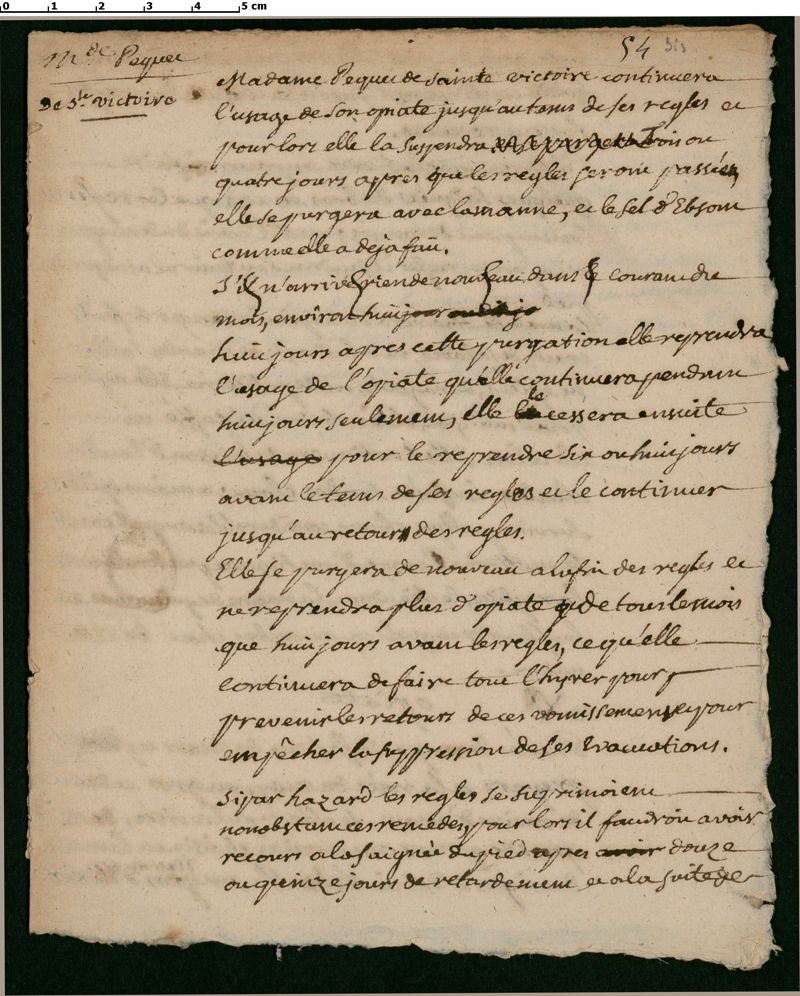 0 1 2 3 4 5 cm
54 bis
Mde Pequec
De Ste victoire
Madame Pequec de sainte victoire continuera
l'usage de son opiate jusqu'au tems de ses regles et
pour lors elle la suspendra trois ou
quatre jours apres que les regles seront passées,
elle se purgera avec la manne, et le sel d'Ebsom
comme elle a deja fait.
S'il n'arrive rien de nouveau dans le courant du
mois, environ huit jours
huit jours apres cette purgation elle reprendra
l'usage de l'opiate qu'elle continuera pendant
huit jours seulement, elle le cessera ensuite
l'usage pour le reprendre six ou huit jours
avant le tems de ses regles et le continuer
jusqu'au retour des regles.
Elle se purgera de nouveau a la fin des regles et
ne reprendra plus d'opiate de tout le mois
que huit jours avant les regles, ce qu'elle
continuera de faire tout l'hyver pour
prevenir les retours de ces vomissements et pour
empêcher la suppression de ses evacuations.
Si par hazard les regles se suprimoient
nonobstant ces remedes, pour lors il faudroit avoir
recours a la saignée du pied apres avoir douze
ou quinze jours de retardement et a la suite de